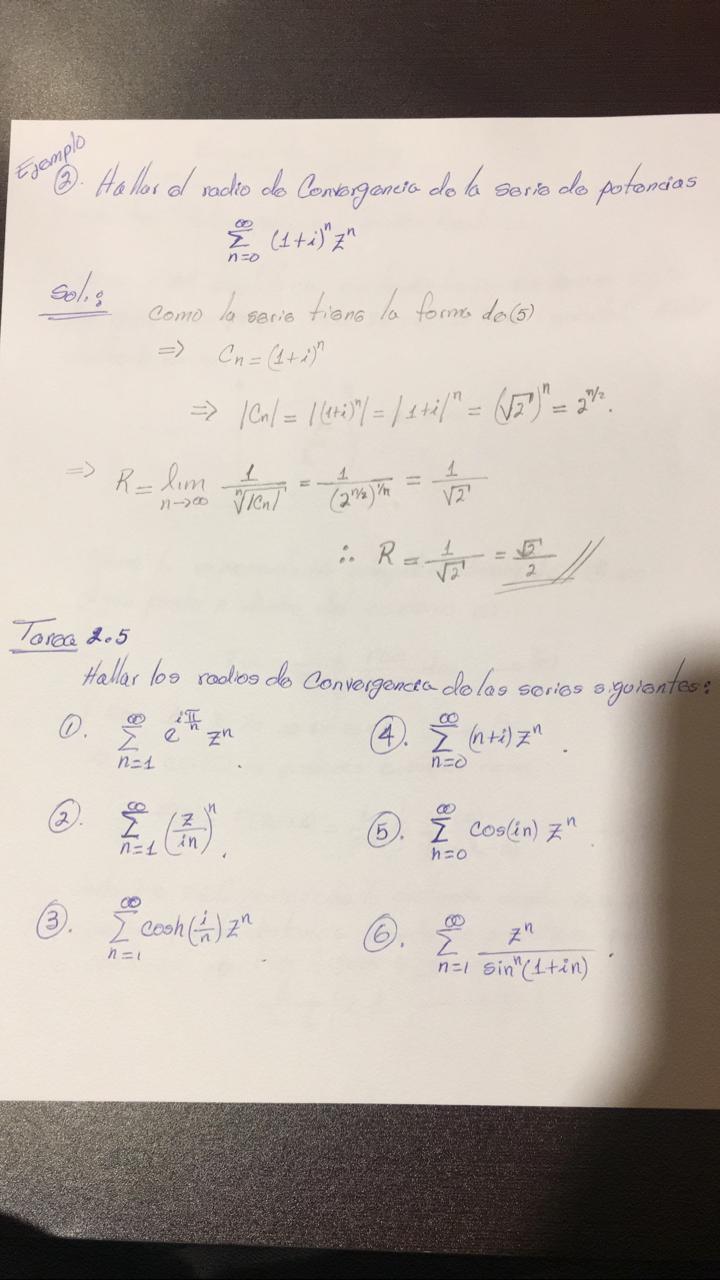 Ejemplo
②. Hallar el radio de Convergencia de la serie de potencias
∞∑n=0 (1+i)ⁿ zⁿ
Sol.:
Como la serie tiene la forma de (5)
⇒ Cn = (1+i)ⁿ
⇒ |Cn| = |(1+i)ⁿ| = |1+i|ⁿ = (√2)ⁿ = 2^(n/2).
⇒ R = lim n→∞ 1/ⁿ√|Cn| = 1/(2^(n/2))^(1/n) = 1/√2
∴ R = 1/√2 = √2/2 //
Tarea 2.5
Hallar los radios de Convergencia de las series siguientes:
①. ∞∑n=1 e^(iπ/n) zⁿ.
④. ∞∑n=0 (n+i) zⁿ.
②. ∞∑n=1 (z/in)ⁿ.
⑤. ∞∑n=0 cos(in) zⁿ.
③. ∞∑n=1 cosh(i/n) zⁿ.
⑥. ∞∑n=1 zⁿ/sinⁿ(1+in).